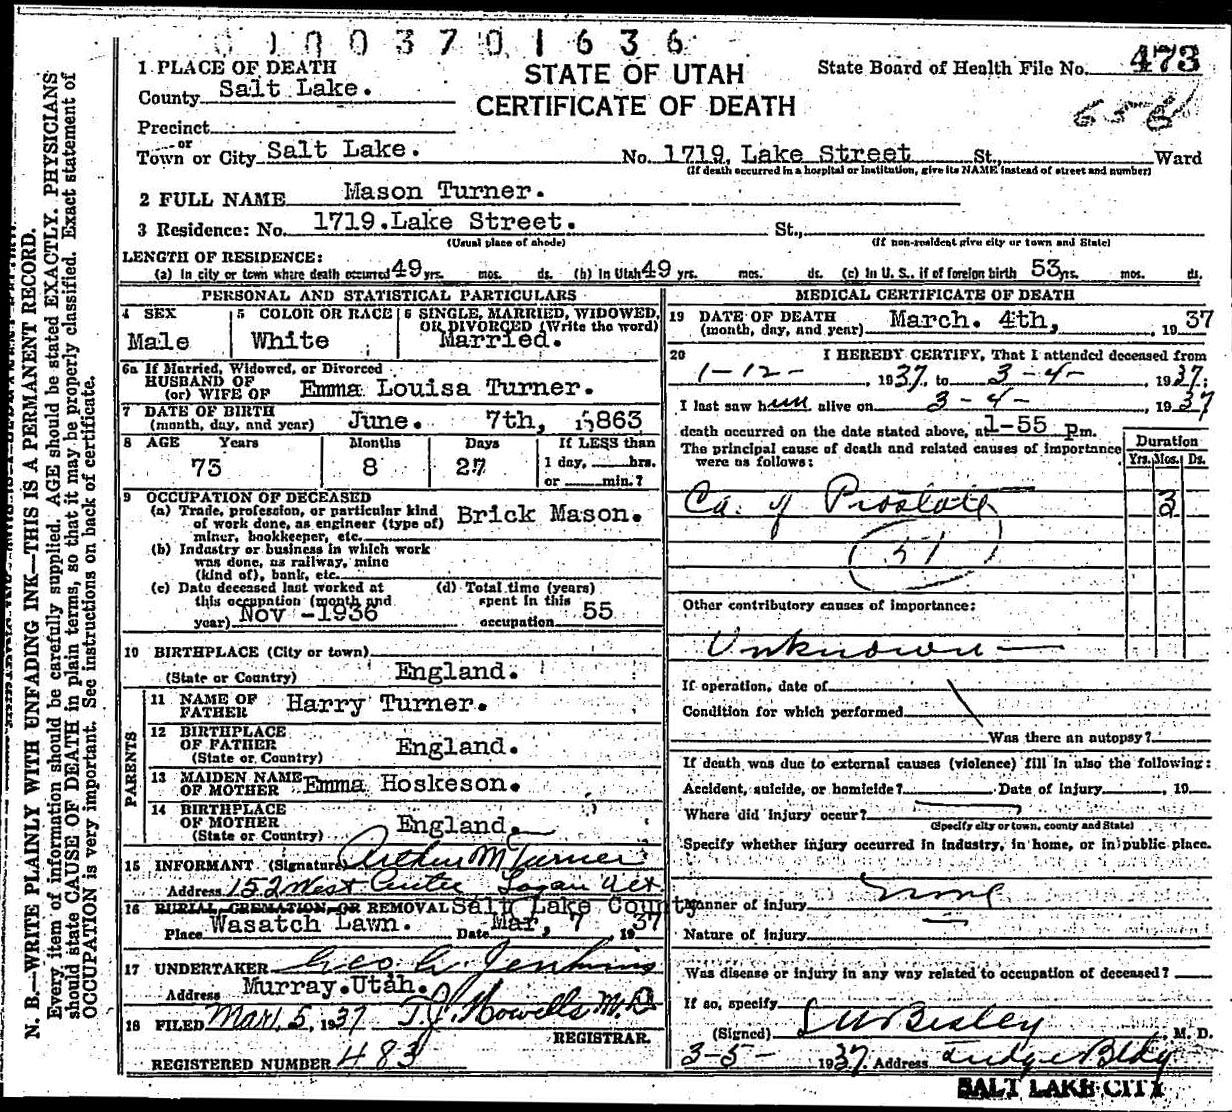 0 1 0 0 3 7 0 1 6 3 6
1 PLACE OF DEATH
County Salt Lake.
STATE OF UTAH
CERTIFICATE OF DEATH
State Board of Health File No. 473
Precinct
or
Town or City Salt Lake. No. 1719, Lake Street St., Ward
(If death occurred in a hospital or institution, give its NAME instead of street and number)
2 FULL NAME Mason Turner.
3 Residence: No. 1719.Lake Street. St.,
(Usual place of abode) (If non-resident give city or town and State)
LENGTH OF RESIDENCE:
(a) In city or town where death occurred 49 yrs. mos. ds. (b) In Utah 49 yrs. mos. ds. (c) In U. S., if of foreign birth 53 yrs. mos. ds.
PERSONAL AND STATISTICAL PARTICULARS
4 SEX
Male
5 COLOR OR RACE
White
6 SINGLE, MARRIED, WIDOWED,
OR DIVORCED (Write the word)
Married.
6a If Married, Widowed, or Divorced
HUSBAND OF
(or) WIFE OF Emma Louisa Turner.
7 DATE OF BIRTH
(month, day, and year) June. 7th, 1863
8 AGE Years Months Days If LESS than
73 8 27 1 day, hrs.
or min.?
9 OCCUPATION OF DECEASED
(a) Trade, profession, or particular kind
of work done, as engineer (type of)
miner, bookkeeper, etc. Brick Mason.
(b) Industry or business in which work
was done, as railway, mine
(kind of), bank, etc.
(c) Date deceased last worked at
this occupation (month and
year) Nov -1936
(d) Total time (years)
spent in this
occupation 55
10 BIRTHPLACE (City or town)
(State or Country) England.
PARENTS
11 NAME OF
FATHER Harry Turner.
12 BIRTHPLACE
OF FATHER
(State or Country) England.
13 MAIDEN NAME
OF MOTHER Emma Hoskeson.
14 BIRTHPLACE
OF MOTHER
(State or Country) England.
15 INFORMANT (Signature) Arthur M Turner
Address 152 West Center Logan Ut.
16 BURIAL, CREMATION, OR REMOVAL Salt Lake County
Place Wasatch Lawn. Date Mar, 7 1937
17 UNDERTAKER Geo A. Jenkins
Address Murray.Utah.
18 FILED Mar. 5, 1937 T. J. Howells M.D
REGISTRAR.
REGISTERED NUMBER 483
MEDICAL CERTIFICATE OF DEATH
19 DATE OF DEATH
(month, day, and year) March. 4th, 1937
20 I HEREBY CERTIFY, That I attended deceased from
1-12-, 1937, to 3-4-, 1937;
I last saw him alive on 3-4-, 1937
death occurred on the date stated above, at 1-55 Pm.
The principal cause of death and related causes of importance
were as follows:
Duration
Yrs. Mos. Ds.
Ca. of Prostate 3
51
Other contributory causes of importance:
Unknown
If operation, date of
Condition for which performed
Was there an autopsy?
If death was due to external causes (violence) fill in also the following:
Accident, suicide, or homicide? Date of injury , 19
Where did injury occur?
(Specify city or town, county and State)
Specify whether injury occurred in industry, in home, or in public place.
none
Manner of injury
Nature of injury
Was disease or injury in any way related to occupation of deceased?
If so, specify
(Signed) Besley M. D.
3-5- 1937. Address Judge Bldg
SALT LAKE CITY
N. B.—WRITE PLAINLY WITH UNFADING INK—THIS IS A PERMANENT RECORD.
Every item of information should be carefully supplied. AGE should be stated EXACTLY. PHYSICIANS
should state CAUSE OF DEATH in plain terms, so that it may be properly classified. Exact statement of
OCCUPATION is very important. See instructions on back of certificate.